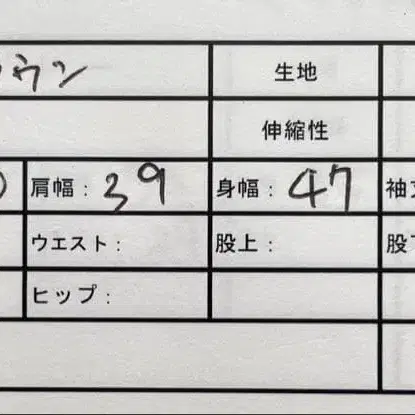 ウン 生地
伸縮性
肩幅：39 身幅：47 袖
ウエスト： 股上： 股
ヒップ：